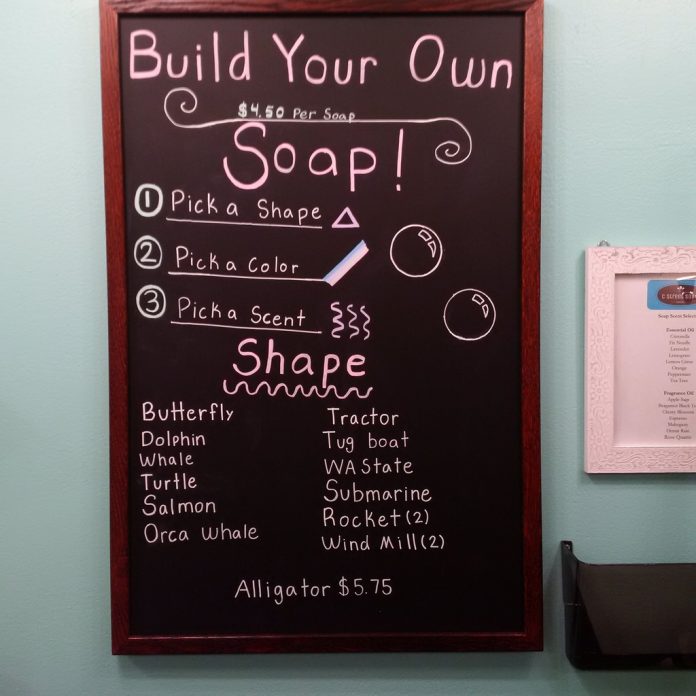 Build Your Own
$4.50 Per Soap
Soap!
1 Pick a Shape
2 Pick a Color
3 Pick a Scent
Shape
Butterfly
Dolphin
Whale
Turtle
Salmon
Orca Whale
Tractor
Tug boat
WA State
Submarine
Rocket (2)
Wind Mill (2)
Alligator $5.75
Soap Scent
Essential Oil
Citronella
Fir Needle
Lavender
Lemongrass
Orange
Peppermint
Tea Tree
Fragrance Oil
Apple Sage
Cherry Blossom
Mahogany
Ocean Rain
River Quartz